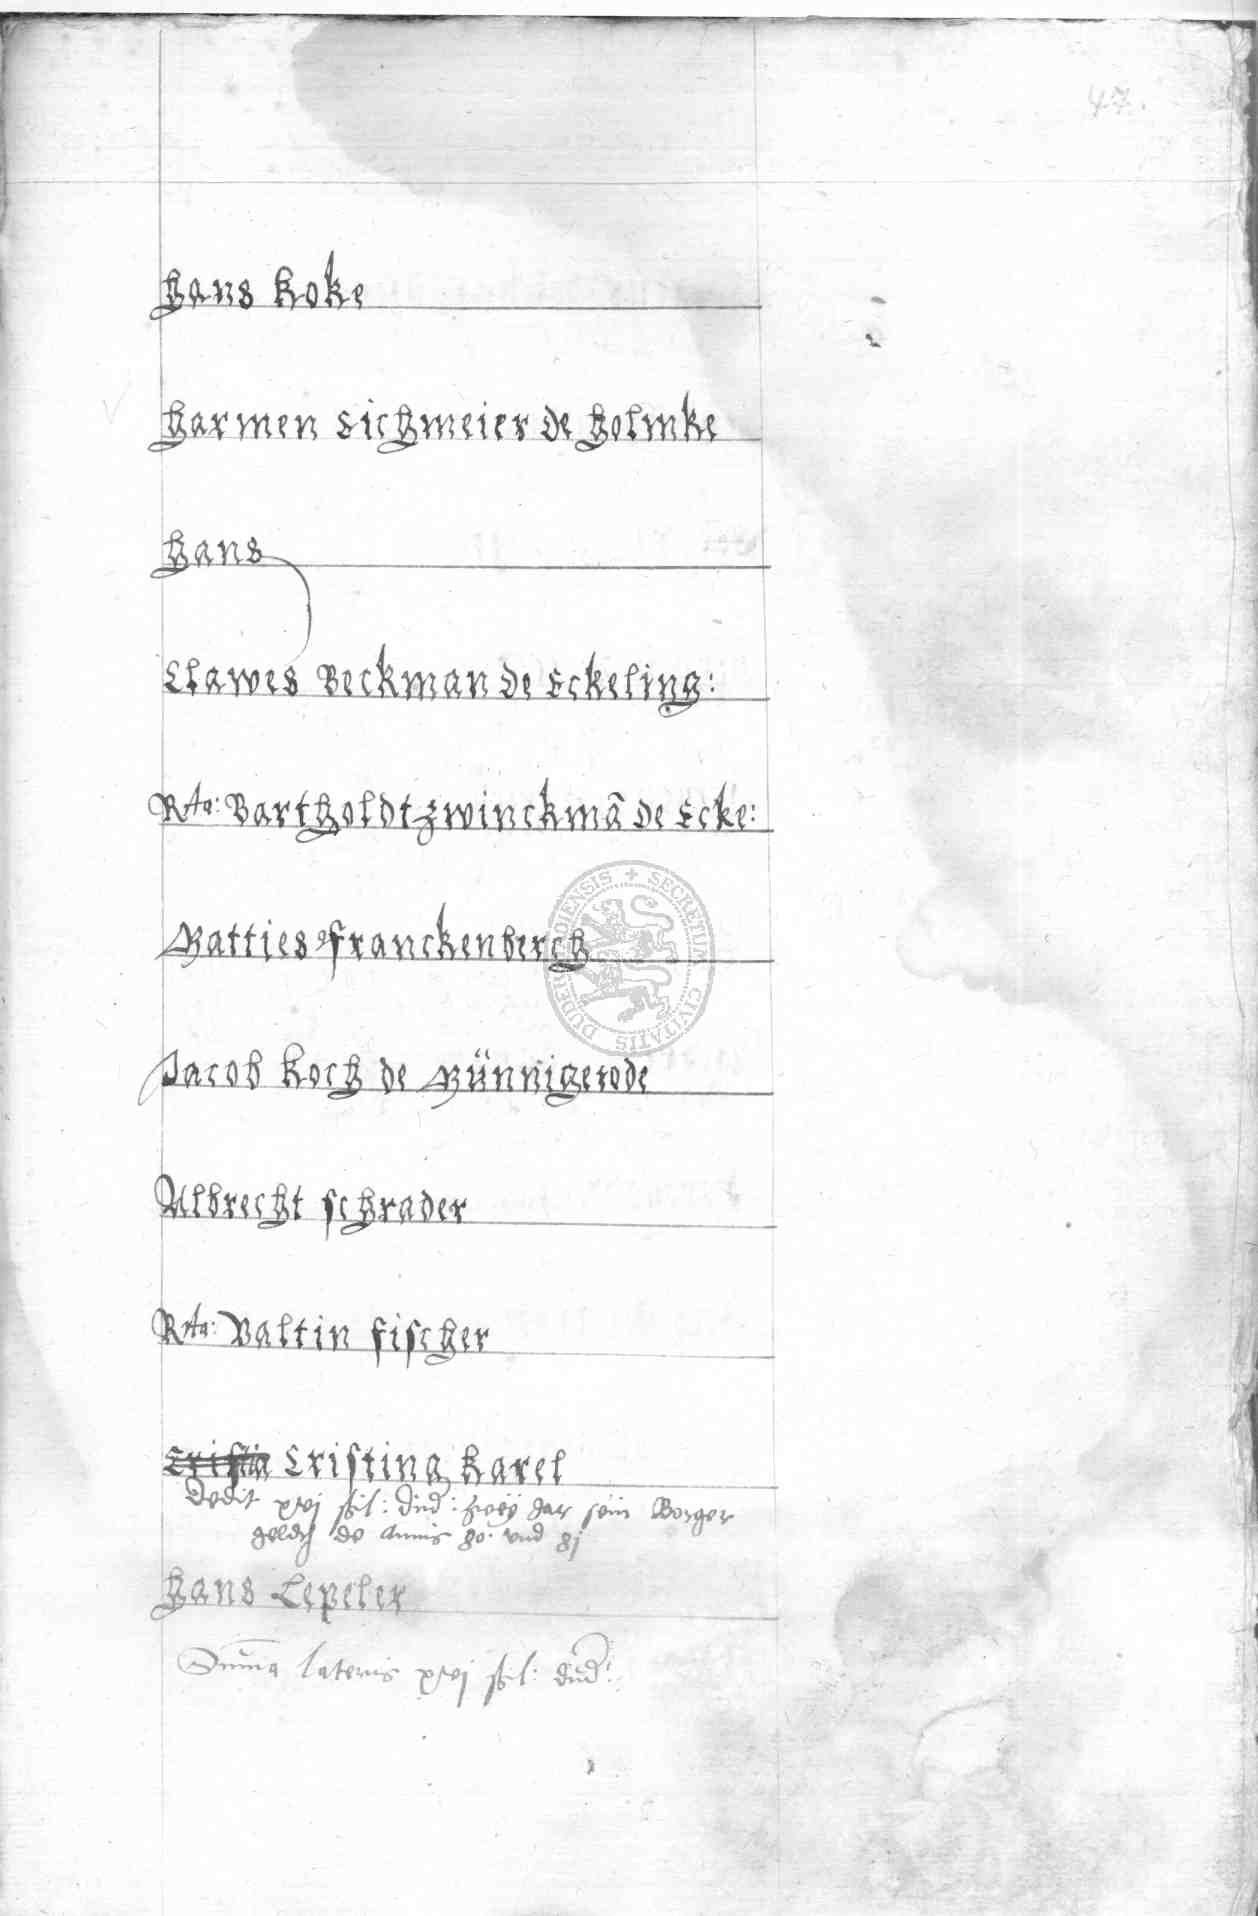 47.
Hans Koke
Harmen Sichmeier de Holmke
Hans
Clawes Beckman de Eckeling:
Rta: Bartholdt Zwinckmã de Ecke:
Matties Franckenberch
Jacob Koch de Münnigerode
Albrecht Schrader
Rta: Valtin Fischer
Cristin Cristina Karel
Dedit xvj ßil: dud: zwey Jar sein Borger
geldt de annis 80 und 81
Hans Lepeler
Summa lateris xvj ßil: dud:
SECRETUM CIVITATIS DUDERSTADIENSIS